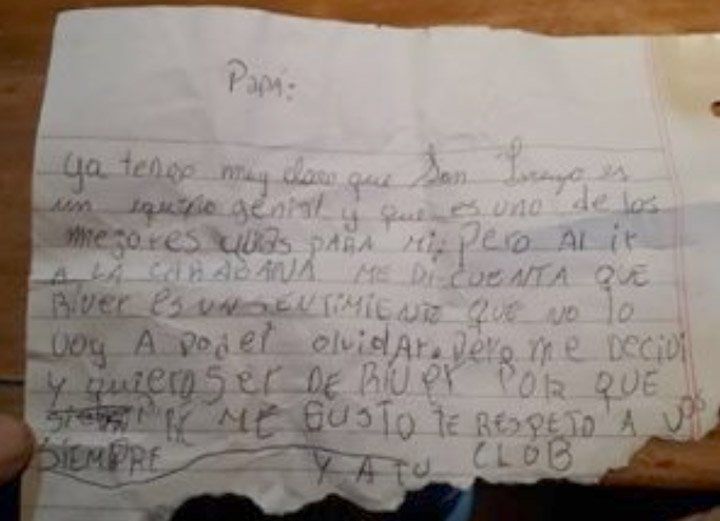 Papá:
Ya tengo muy claro que San Lorenzo es
un equipo genial y que es uno de los
mejores PARA Mi, Pero Al ir
A LA CARABANA ME DI CUENTA QUE
River es UN SENTIMIENTO QUE NO lo
voy A poder olvidAr. Pero me Decidi
y quiero ser DE River POR QUE
ME GUSTO TE RESPETO A VOS
SIEMPRE Y A TU CLUB